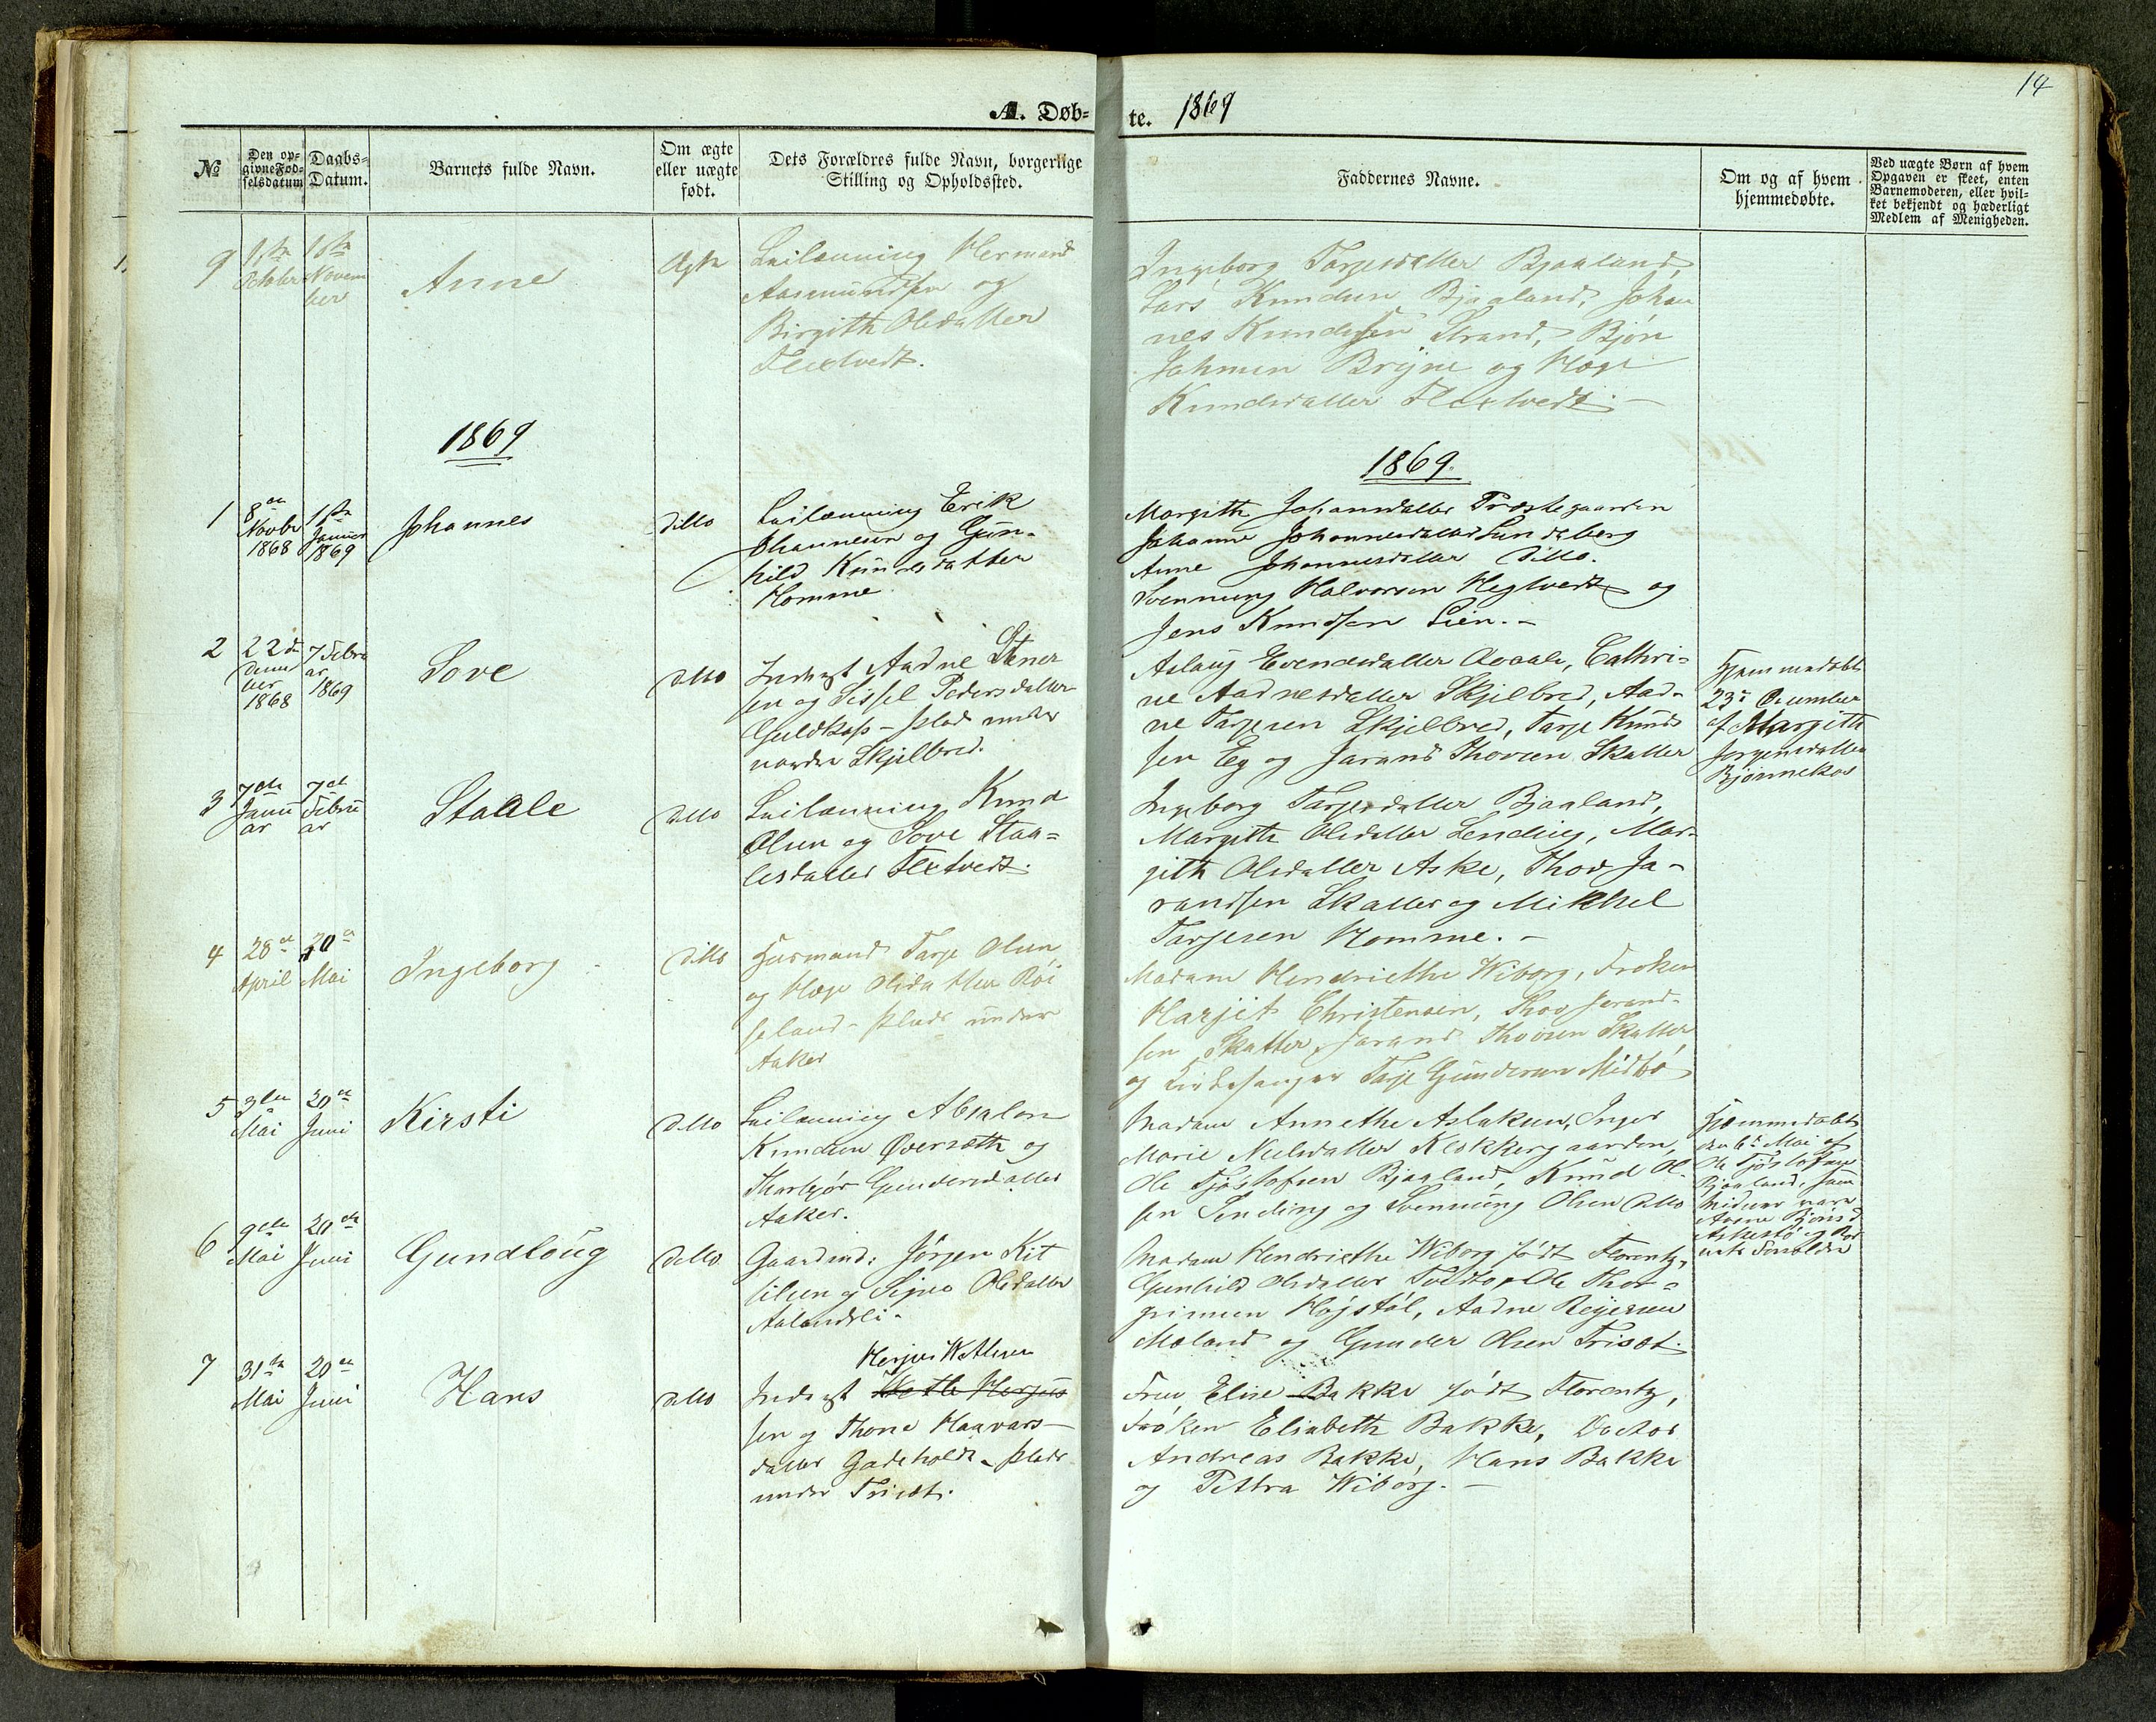 14
A. Døb-
te. 1869
№
Den op-
givne Fød-
selsdatum
Daabs-
Datum.
Barnets fulde Navn.
Om ægte
eller uægte
født.
Dets Forældres fulde Navn, borgerlige
Stilling og Opholdssted.
Faddernes Navne.
Om og af hvem
hjemmedøbte.
Ved uægte Børn af hvem
Opgaven er skeet, enten
Barnemoderen, eller hvil-
ket bekjendt og hæderligt
Medlem af Menigheden.
9
October
Novem
ber
Anne
Ægte
Leilænning Hermand
Aasmundsen og
Birgith Olsdatter
Flextvedt.
Ingeborg Tarjesdatter Bjaaland,
Lars Knudsen Bjaaland, Johan
nes Knudsen Strand, Bjørn
Brijne og Hæge
Knudsdatter Flextvedt. -
1869
1869.
1
8de
Novbr
1868
1ste
Januar
1869
Johannes
ditto
Leilænning Erik
Johannesen og Gun-
hild Knudsdatter
Homme
Margith Johannsdatter Præstegaarden
Johanne Johannesdatter Sundsberg
Anne Johannesdatter ditto.
Svennung Halvorsen Hegtvedt og
Jens Knudsen Lien. -
2
22de
Decem
ber
1868
7 Febru
ar
1869
Sove
ditto
Inderst Aadne Stener
sen og Sissel Pedersdatter
Guldkaas - Plads under
nordre Skjelbred.
Aslaug Evensdatter Cathri-
ne Aadnesdatter Skjelbred, Aad-
ne Tarjesen Skjelbred, Tarje Knud
sen Eg og Jarand Thovsen Skatter
Hjemmedøbt
23de December
af Margith
Jørgensdatter
Bjønnekos
3
7de
Janu
ar
7de
Febru
ar
Staale
ditto
Leilænning Knud
Olsen og Sove Staa-
lesdatter Flextvedt.
Ingeborg Tarjesdatter Bjaaland,
Margith Olsdatter Sending, Mar-
gith Olsdatter Aske, Thov Ja-
randsen Skatter og Mikkel
Tarjesen Homme. -
4
28de
April
20de
Mai
Ingeborg
ditto
Husmand Tarje Olsen
og Hæge Olsdatter Røi
seland - Plads under
Aaker
Madam Hendriethe Wiborg, Frøken
Christensen, Thov Jarand-
sen Skatter, Jarand Thovsen Skatter
og Kirkesanger Tarje Gundersen Midbø
5
3die
Mai
20de
Juni
Kirsti
ditto
Leilænning Absalon
Knudsen Øversæth og
Thorbjør Gundersdatter
Aaker.
Madam Annethe Aslaksen, Inger
Marie Nielsdatter Klokkergaarden,
Ole Tjøstolfsen Bjaaland, Knud Ol-
sen Sending og Svennung Olsen ditto
Hjemmedøbt
den 6te Mai af
Ole Tjøstolfsen
Bjaaland, som
Vidner vare
og Bar
nets Forældre
6
9de
Mai
20de
Juni
Gundloug
ditto
Gaardmd: Jørgen Kit
tilsen og Signe Olsdatter
Aalandsli -
Madam Hendriethe Wiborg født Florentz,
Gunhild Olsdatter Ole Thor-
grimsen Højstøl, Aadne Reijersen
Moland og Gunder Olsen Trisæt.
7
31te
Mai
20de
Juni
Hans
ditto
Herjus Wetlesen
Inderst Wetle Herjus
sen og Thone Haavars-
datter Gadeholdt - Plads
under Trisæt.
Frue Elise Bakke født Florentz,
Frøken Elisabeth Bakke, Doctor
Andreas Bakke, Hans Bakke
og Petra Wiborg. -